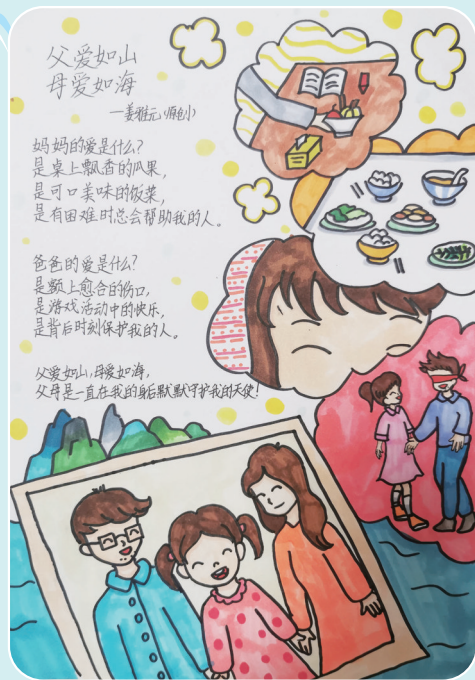 父爱如山
母爱如海
—姜雅元(原创)
妈妈的爱是什么?
是桌上飘香的瓜果,
是可口美味的饭菜,
是有困难时总会帮助我的人。
爸爸的爱是什么?
是额上愈合的伤口,
是游戏活动中的快乐,
是背后时刻保护我的人。
父爱如山,母爱如海,
父母是一直在我的身后默默守护我的天使!